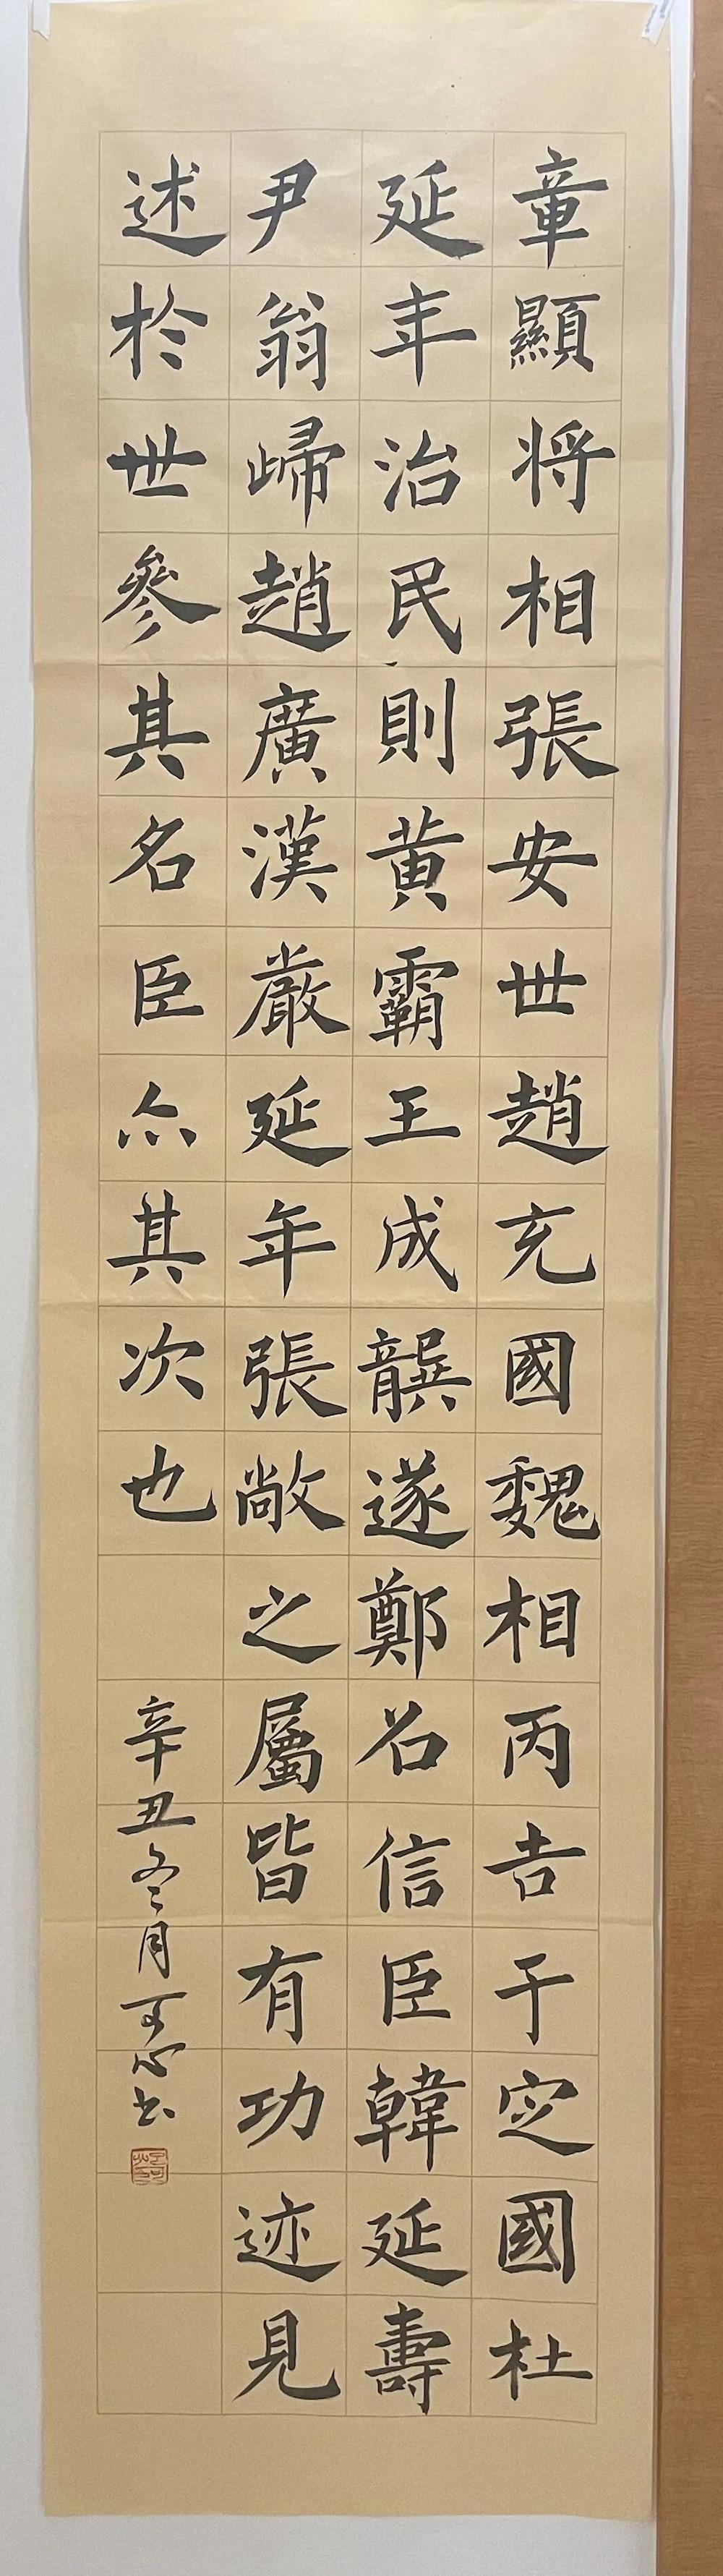 章顯將相張安世趙充國魏相丙吉于定國杜
延年治民則黃霸王成龔遂鄭召信臣韓延壽
尹翁歸趙廣漢嚴延年張敞之屬皆有功迹見
述於世參其名臣亦其次也
辛丑冬月可心书